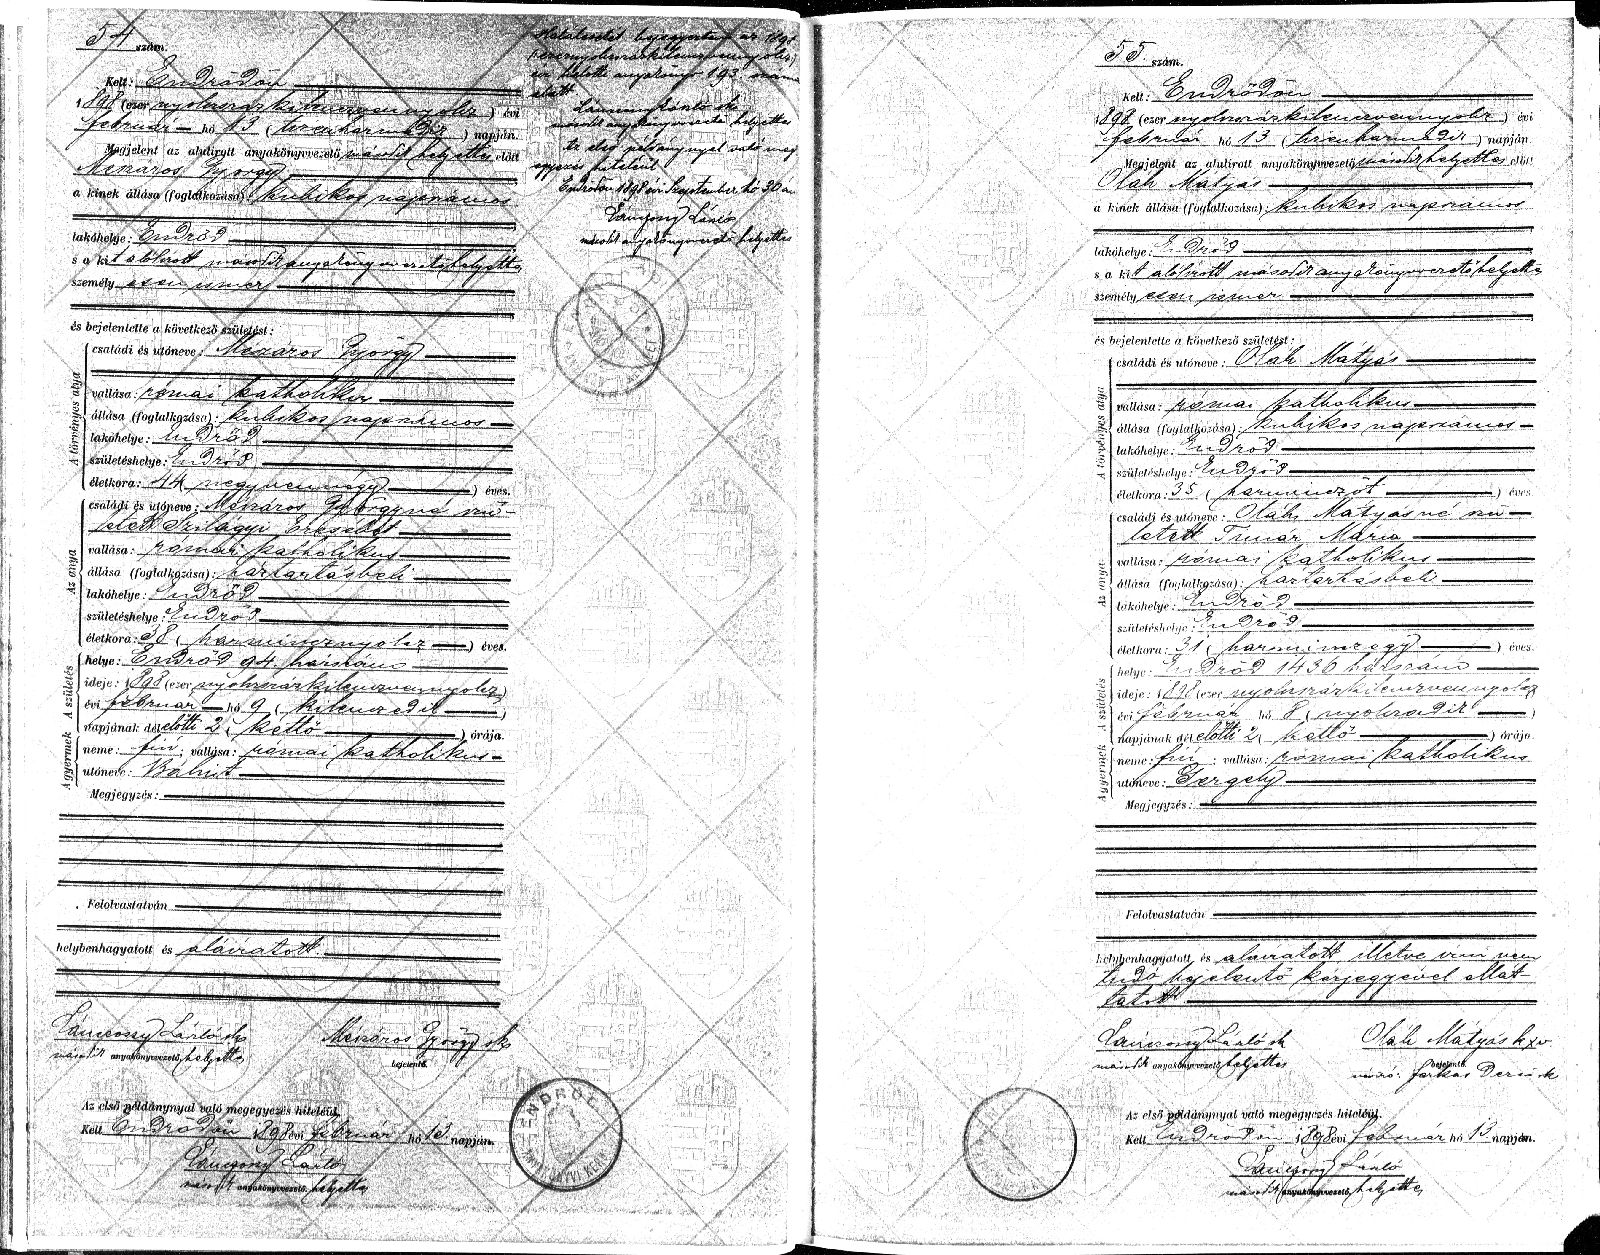 54 szám.
Kelt: Endrődön
1898 (ezer nyolczszázkilenczvennyolcz) évi
február hó 13 (tizenharmadik) napján.
Megjelent az alulirott anyakönyvvezető másodk helyettes előtt
Mészáros György
a kinek állása (foglalkozása): kubikos napszámos
lakóhelye: Endrőd
s a kit alólirott másodk anyakönyvvezetőhelyettes
személyesen ismer
és bejelentette a következő születést:
A törvényes atya
családi és utóneve: Mészáros György
vallása: római katholikus
állása (foglalkozása): kubikos napszámos
lakóhelye: Endrőd
születéshelye: Endrőd
életkora: 44 (negyvennégy) éves.
Az anya
családi és utóneve: Mészáros Györgyné szü-
letett Szilágyi Erzsébet
vallása: római katholikus
állása (foglalkozása): háztartásbeli
lakóhelye: Endrőd
születéshelye: Endrőd
életkora: 38 (harmincznyolcz) éves.
A születés
helye: Endrőd 94. házszám
ideje: 1898 (ezer nyolczszázkilenczvennyolcz)
évi február hó 9 (kilenczedik)
napjának délelőtti 2 (kettő) órája.
A gyermek
neme: fiú; vallása: római katholikus
utóneve: Bálint
Megjegyzés:
Felolvastatván
helybenhagyatott és aláiratott.
Lánczony László sk Mészáros György sk
másodk anyakönyvvezető helyettes bejelentő.
Az első példánynyal való megegyezés hiteléül.
Kelt Endrődön 1898 évi február hó 13 napján.
Lánczony László
másodk anyakönyvvezető helyettes
Halálesetet bejegyeztem az 1898
(ezernyolczszázkilenczvennyolcz)
évi halotti anyakönyv 193. száma
alatt
Lánczony László sk
másodk anyakönyvvezető helyettes
Az első példánynyal való meg
egyezés hiteléül
Endrődön 1898 évi Szeptember hó 30 án
Lánczony László
másodk anyakönyvvezető helyettes
ENDRŐD
55. szám.
Kelt: Endrődön
1898 (ezer nyolczszázkilenczvennyolcz) évi
február hó 13 (tizenharmadik) napján.
Megjelent az alulirott anyakönyvvezető másodk helyettes előtt
Oláh Mátyás
a kinek állása (foglalkozása): kubikos napszámos
lakóhelye: Endrőd
s a kit alólirott másodk anyakönyvvezetőhelyettes
személyesen ismer
és bejelentette a következő születést:
A törvényes atya
családi és utóneve: Oláh Mátyás
vallása: római katholikus
állása (foglalkozása): kubikos napszámos
lakóhelye: Endrőd
születéshelye: Endrőd
életkora: 35 (harminczöt) éves
Az anya
családi és utóneve: Oláh Mátyásné szü
letett Tímár Mária
vallása: római katholikus
állása (foglalkozása): háztartásbeli
lakóhelye: Endrőd
születéshelye: Endrőd
életkora: 31 (harminczegy) éves.
A születés
helye: Endrőd 1436 házszám
ideje: 1898 (ezer nyolczszázkilenczvennyolcz
évi február hó 8 (nyolczadik)
napjának délelőtti 2 (kettő) órája.
A gyermek
neme: fiú; vallása: római katholikus
utóneve: Gergely
Megjegyzés:
Felolvastatván
helybenhagyatott és aláiratott illetve irni nem
tudó bejelentő kézjegyével ellát-
tatott
Lánczony László sk Oláh Mátyás k x v
másodk anyakönyvvezető helyettes bejelentő.
névíró: Farkas Dezső sk
Az első példánynyal való megegyezés hiteléül.
Kelt Endrődön 1898 évi február hó 13 napján.
Lánczony László
másodk anyakönyvvezető helyettes